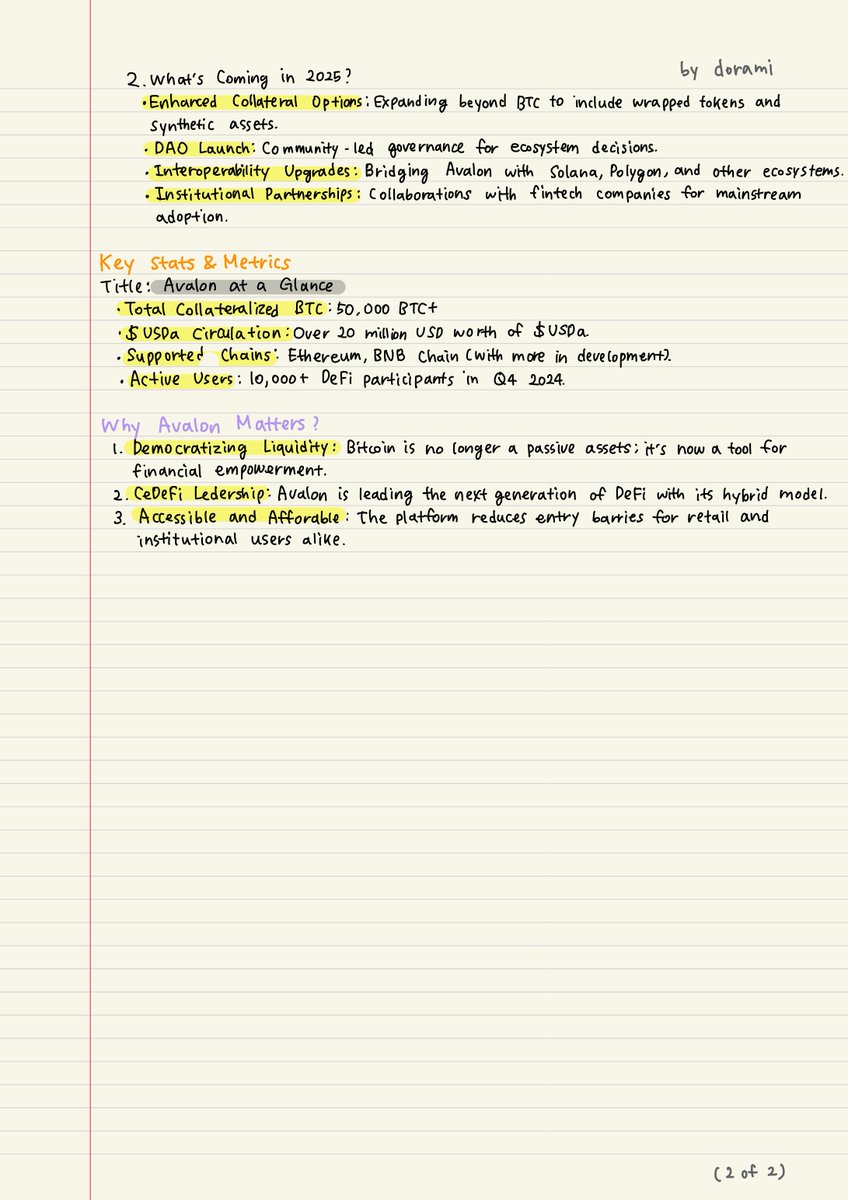 by dorami
2. What's Coming in 2025?
• Enharced Collateral Options: Expanding beyond BTC to include wrapped tokens and
synthetic assets.
• DAO Launch: Community-led governance for ecosystem decisions.
• Interoperability Upgrades: Bridging Avalon with Solana, Polygon, and other ecosystems.
• Institutional Partnerships: Collaborations with fintech companies for mainstream
adoption.
Key Stats & Metrics
Title: Avalon at a Glance
• Total Collateralized BTC: 50,000 BTC+
• $USDa Circulation: Over 20 million USD worth of $USDa.
• Supported Chains: Ethereum, BNB Chain (with more in development).
• Active Users: 10,000+ DeFi participants in Q4 2024.
Why Avalon Matters?
1. Democratizing Liquidity: Bitcoin is no longer a passive assets; it's now a tool for
financial empowerment.
2. CeDeFi Ledership: Avalon is leading the next generation of DeFi with its hybrid model.
3. Accessible and Afforable: The platform reduces entry barries for retail and
institutional users alike.
(2 of 2)